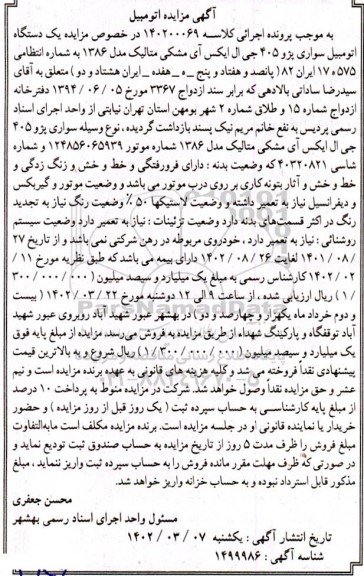 آگهی مزایده اتومبیل
به موجب پرونده اجرائی کلاسه ۱۴۰۲۰۰۰۶۹ در خصوص مزایده یک دستگاه
اتومبیل سواری پژو ۴۰۵ جی ال ایکس آی مشکی متالیک مدل ۱۳۸۶ به شماره انتظامی
۵۷۵ ه ۱۷ ایران ۸۲ ( پانصد و هفتاد و پنج _ ه _ هفده _ ایران هشتاد و دو ) متعلق به آقای
سیدرضا ساداتی بالادهی که برابر سند ازدواج ۳۳۶۷ مورخ ۰۵ / ۰۶ / ۱۳۹۴ دفترخانه
ازدواج شماره ۱۵ و طلاق شماره ۲ شهر بومهن استان تهران نیابتی از واحد اجرای اسناد
رسمی پردیس به نفع خانم مریم نیک پسند بازداشت گردیده ، نوع وسیله سواری پژو ۴۰۵
جی ال ایکس آی مشکی متالیک مدل ۱۳۸۶ شماره موتور ۱۲۴۸۵۶۰۶۵۹۳۹ و شماره
شاسی ۴۰۳۲۰۸۲۱ که وضعیت بدنه : دارای فرورفتگی و خط و خش و زنگ زدگی و
خط و خش و آثار بتونه کاری بر روی درب موتور می باشد و وضعیت موتور و گیربکس
و دیفرانسیل نیاز به تعمیر داشته و وضعیت لاستیکها ۵۰ ٪ وضعیت رنگ نیاز به تجدید
رنگ در اکثر قسمت‌های بدنه دارد وضعیت تزئینات : نیاز به تعمیر دارد وضعیت سیستم
روشنائی : نیاز به تعمیر دارد ، خودروی مربوطه در رهن شرکتی نمی باشد و از تاریخ ۲۷
/ ۰۸ / ۱۴۰۱ لغایت ۲۶ / ۰۸ / ۱۴۰۲ دارای بیمه می باشد که طبق نظریه مورخ ۱۱ /
۰۲ / ۱۴۰۲ کارشناس رسمی به مبلغ یک میلیارد و سیصد میلیون ( ۰۰۰ / ۰۰۰ / ۳۰۰
/ ۱ ) ریال ارزیابی شده ، از ساعت ۹ الی ۱۲ دوشنبه مورخ ۲۲ / ۰۳ / ۱۴۰۲ ( بیست
و دوم خرداد ماه یکهزار و چهارصد و دو ) در بهشهر عبور شهید آباد روبروی عبور شهید
آباد توقفگاه و پارکینگ شهداء از طریق مزایده به فروش می‌رسد. مزایده از مبلغ پایه فوق
یک میلیارد و سیصد میلیون ( ۰۰۰ / ۰۰۰ / ۳۰۰ / ۱ ) ریال شروع و به بالاترین قیمت
پیشنهادی نقداً فروخته می شد و کلیه هزینه های قانونی به عهده برنده مزایده است و نیم
عشر و حق مزایده نقداً وصول خواهد شد. شرکت در مزایده منوط به پرداخت ۱۰ درصد
از مبلغ پایه کارشناسی به حساب سپرده ثبت ( یک روز قبل از روز مزایده ) و حضور
خریدار یا نماینده قانونی او در جلسه مزایده است. برنده مزایده مکلف است مابه‌التفاوت
مبلغ فروش را ظرف مدت ۵ روز از تاریخ مزایده به حساب صندوق ثبت تودیع نماید و
در صورتی که ظرف مهلت مقرر مانده فروش را به حساب سپرده ثبت واریز ننماید ، مبلغ
مذکور قابل استرداد نبوده و به حساب خزانه واریز خواهد شد.
محسن جعفری
مسئول واحد اجرای اسناد رسمی بهشهر
تاریخ انتشار آگهی : یکشنبه ۰۷ / ۰۳ / ۱۴۰۲
شناسه آگهی : ۱۴۹۹۹۸۶